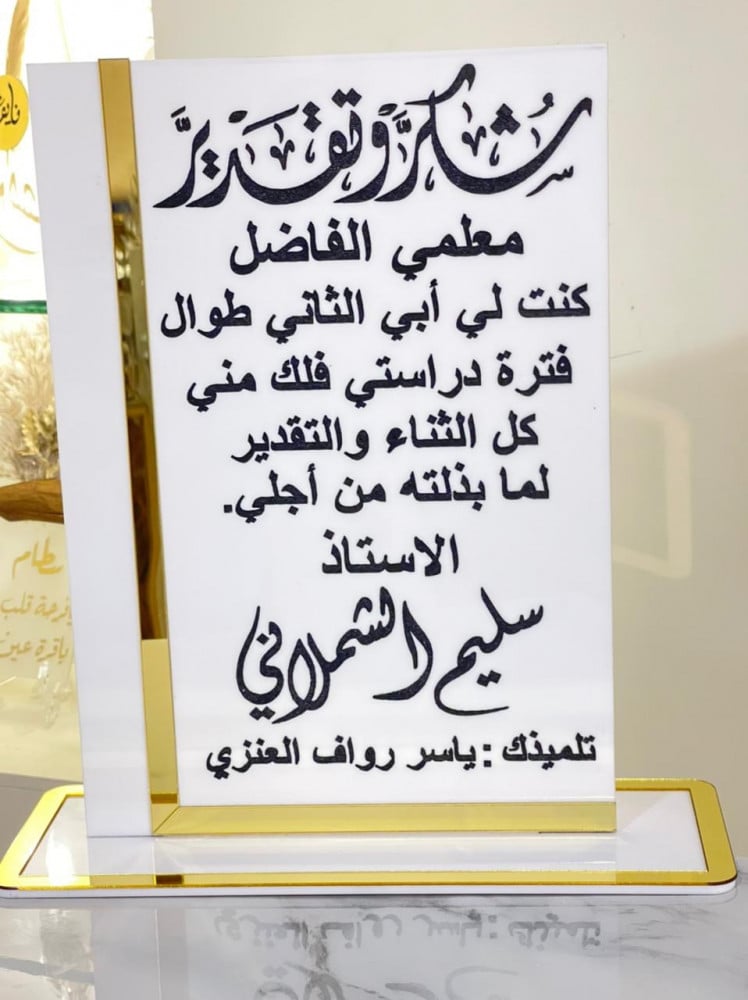 شُكْرٌ وتَقْدِيرٌ
معلمي الفاضل
كنت لي أبي الثاني طوال
فترة دراستي فلك مني
كل الثناء والتقدير
لما بذلته من أجلي.
الاستاذ
سليم الشملاني
تلميذك : ياسر رواف العنزي